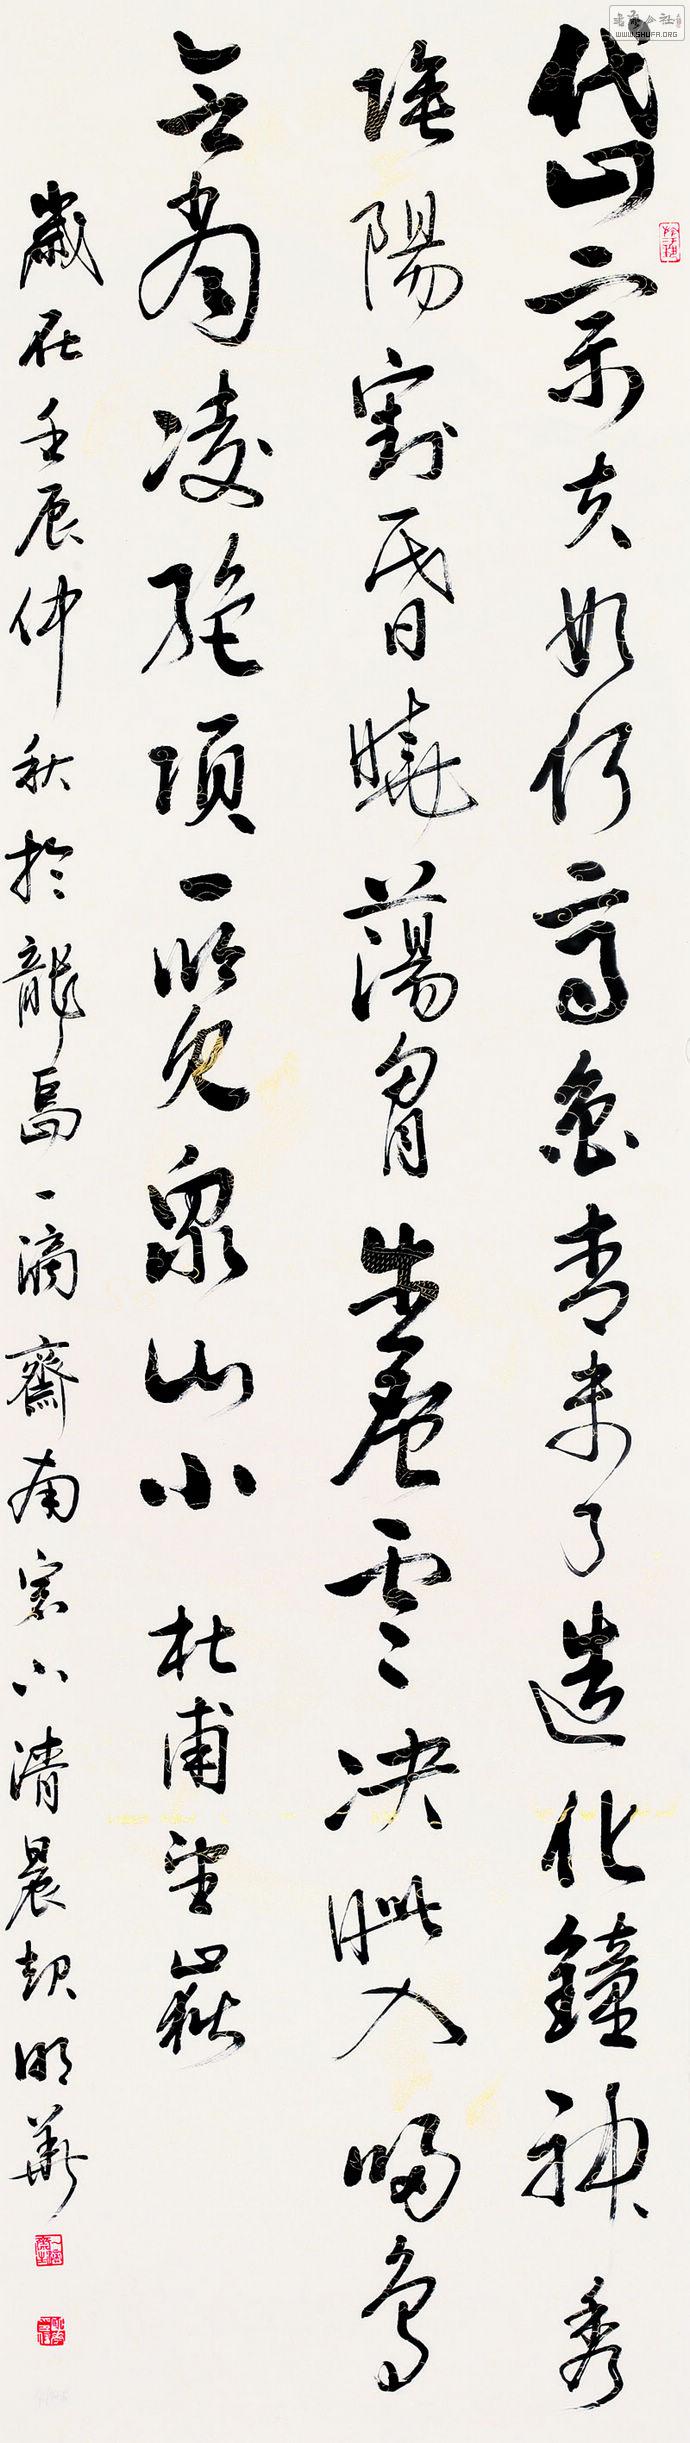 岱宗夫如何齊魯青未了造化鐘神秀
陰陽割昏曉蕩胷生層雲决眦入歸鳥
會當凌絕頂一覽眾山小 杜甫望嶽
歲在壬辰仲秋於龍島一滴齋南窗下清晨趙明華
WWW.SHUFA.ORG